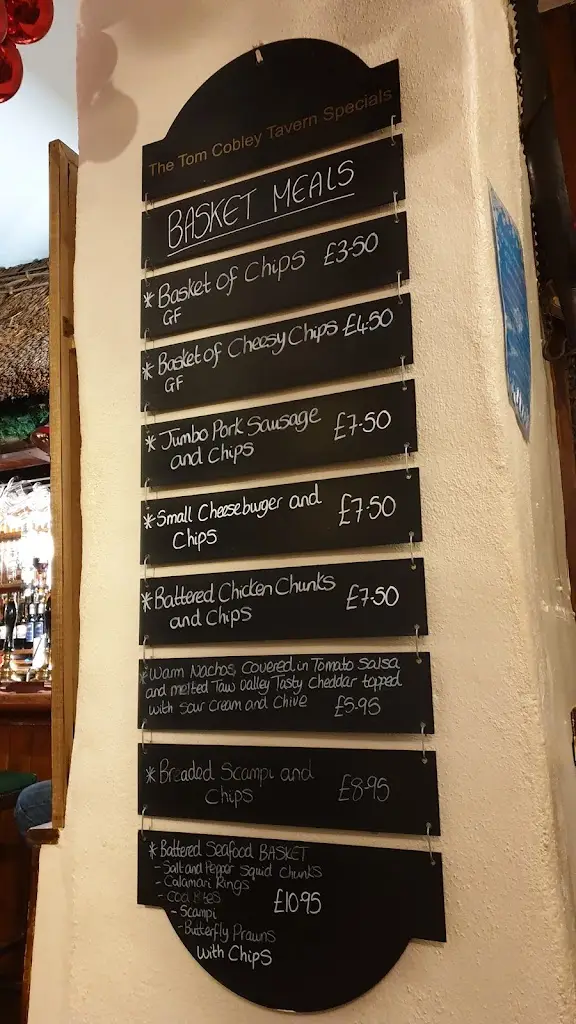 The Tom Cobley Tavern Specials
BASKET MEALS
* Basket of Chips £3.50
GF
* Basket of Cheesy Chips £4.50
GF
* Jumbo Pork Sausage
and Chips £7.50
* Small Cheeseburger and
Chips £7.50
* Battered Chicken Chunks
and Chips £7.50
* Warm Nachos, covered in Tomato Salsa
and melted Taw Valley Tasty Cheddar topped
with sour cream and Chive £5.95
* Breaded Scampi and
Chips £8.95
* Battered Seafood BASKET
- Salt and Pepper squid chunks
- Calamari Rings
- Cod Bites £10.95
- Scampi
- Butterfly Prawns
with Chips